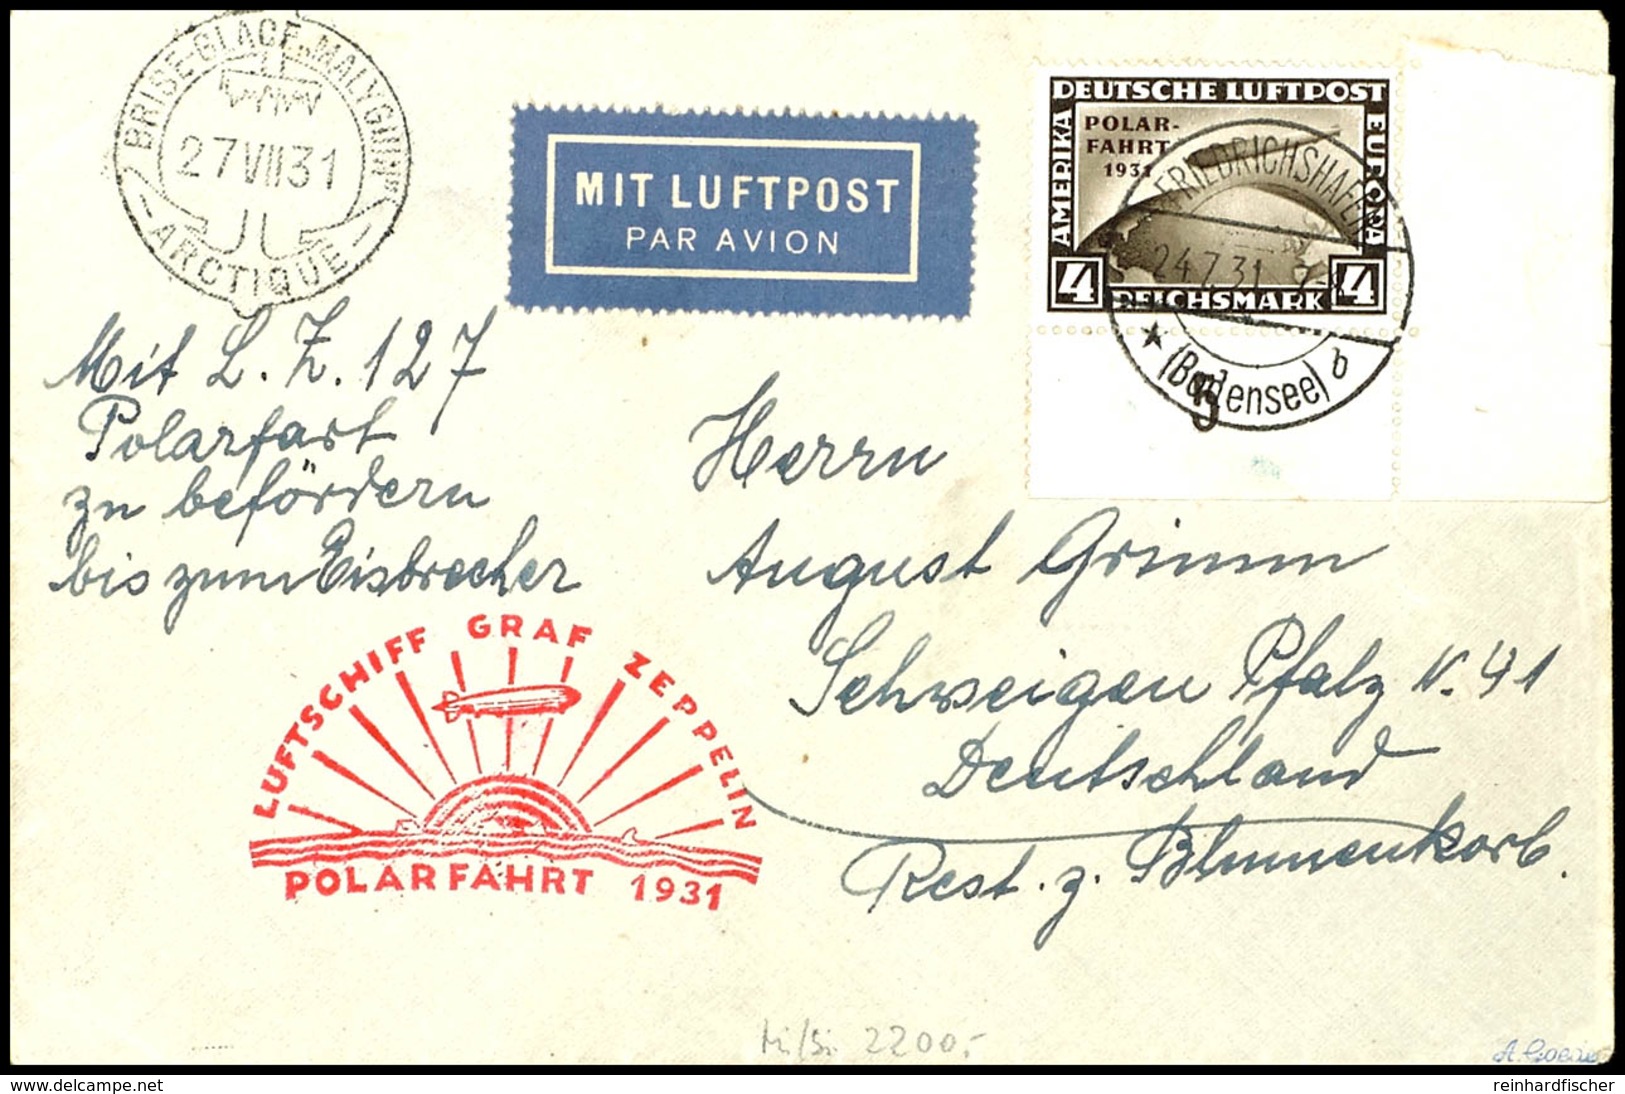 BRISE-GLACE "MALYGUIN"
27 VII 31
-ARCTIQUE-
MIT LUFTPOST
PAR AVION
DEUTSCHE LUFTPOST
AMERIKA
EUROPA
POLAR-
FAHRT
1931
4 REICHSMARK 4
FRIEDRICHSHAFEN
24.7.31. 7-8
(Bodensee) b
Mit L. Z. 127
Polarfart
zu befördern
bis zum Eisbrecher
Herrn
August Grimm
Schweigen Pfalz N. 41
Deutschland
Rest. z. Blumenkorb.
LUFTSCHIFF GRAF ZEPPELIN
POLARFAHRT 1931
Mi/Si 2200,-
reinhardfischer